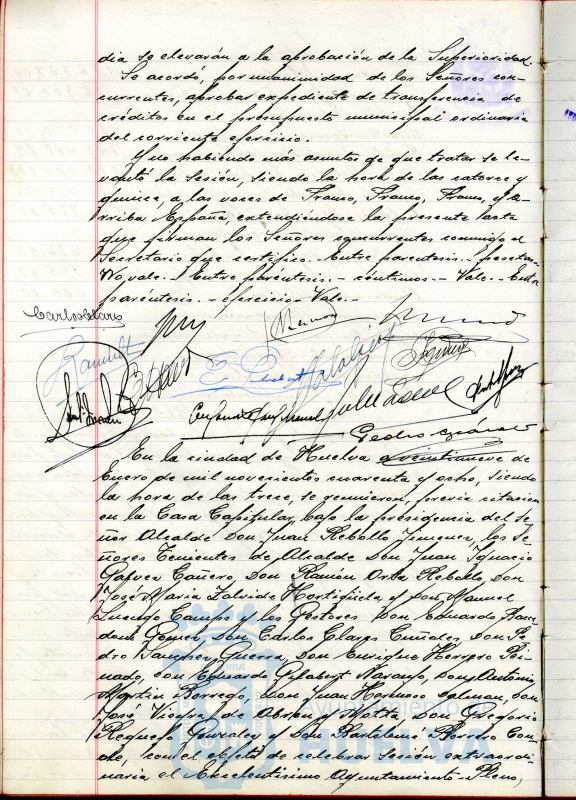 dia se elevarán a la aprobación de la Superioridad.
Se acordó, por unanimidad de los Señores con-
currentes, aprobar expediente de transferencia de
créditos en el presupuesto municipal ordinario
del corriente ejercicio.
Y no habiendo más asuntos de que tratar se le-
vantó la sesión, siendo la hora de las catorce y
quince, a las voces de Franco, Franco, Franco, y A-
rriba España, extendiéndose la presente acta
que firman los Señores concurrentes conmigo el
Secretario que certifico. - Entre parentesis. - pesetas.
No vale. - Entre paréntesis. - céntimos. - Vale. - Entre
paréntesis. - ejercicio - Vale. -
Carlos Clarys
E. Gilabert
Pedro
En la ciudad de Huelva a veintinueve de
Enero de mil novecientos cuarenta y ocho, siendo
la hora de las trece, se reunieron, previa citación
en la Casa Capitular, bajo la presidencia del Se-
ñor Alcalde Don Juan Rebollo Jimenez, los Se-
ñores Tenientes de Alcalde Don Juan Ignacio
Galvez Cañero, Don Ramón Orta Rebollo, Don
José Maria Zalvide Hortigüela y Don Manuel
Luengo Camps y los Gestores Don Eduardo
Gomez, Don Carlos Clarys Cuñales, Don Pe-
dro Vazquez Guerra, Don Enrique Herrero Pei-
nado, Don Eduardo Gilabert Naranjo, Don Antonio
Martin Borrego, Don Juan Hermoso Salman, Don
José Vieyra de Abreu y Motta, Don Gregorio
Requejo Gonzalez y Don Bartolomé Borrero Con-
de, con el objeto de celebrar sesión extraordi-
naria el Excelentísimo Ayuntamiento Pleno,
Ayuntamiento de
HUELVA